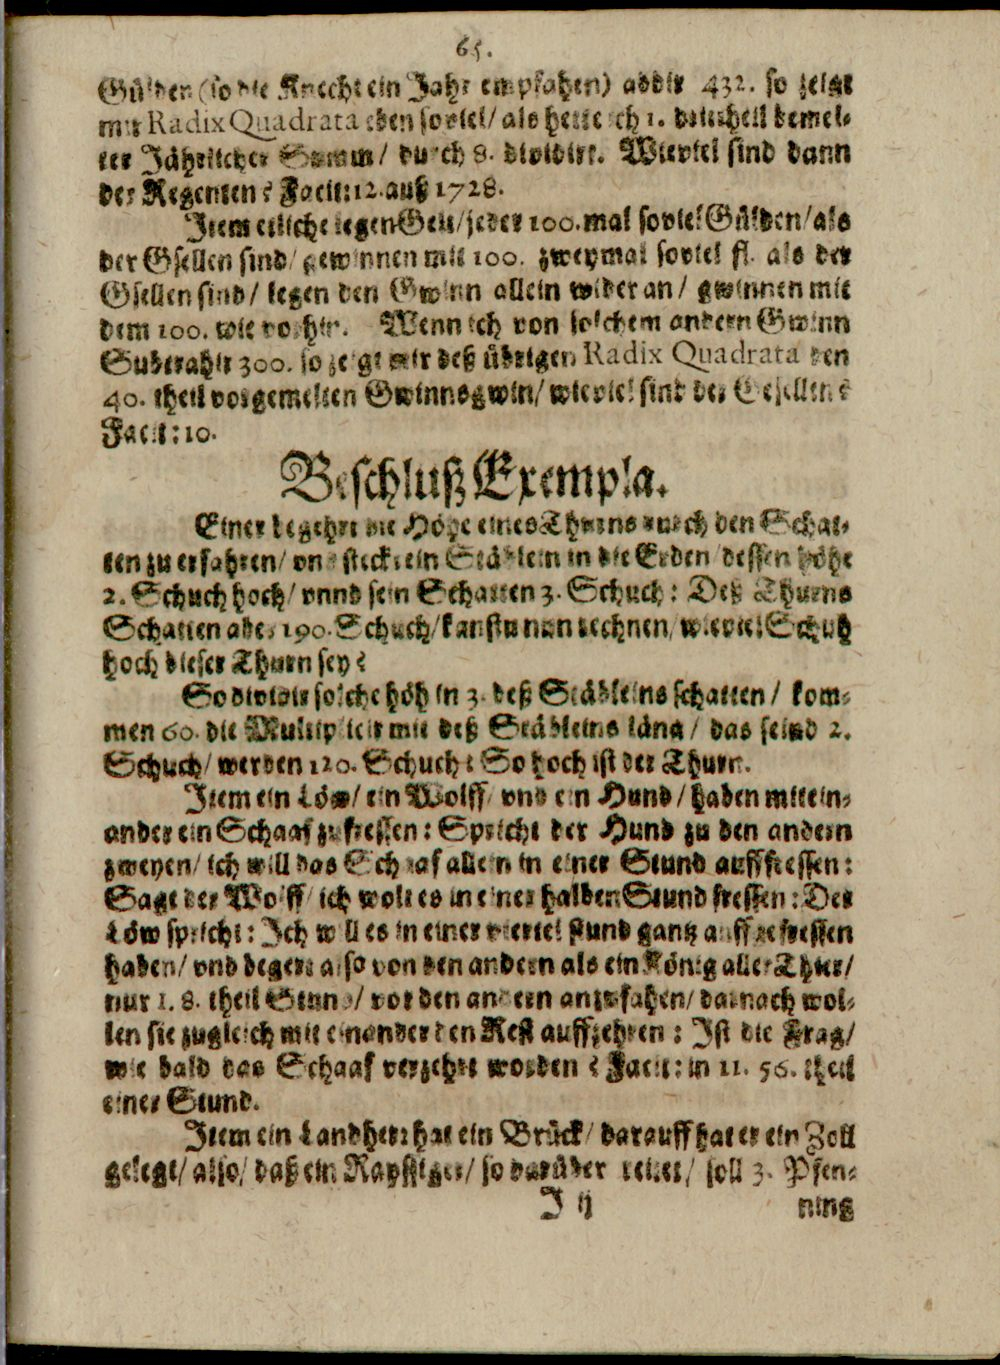 65.
Gülden (so die Knecht ein Jahr empfahen) addir 432. so zeigt
mir Radix Quadrata eben soviel / als hette ich 1. drittheil bemel-
ter Jährlicher Summ / durch 8. dividirt. Wieviel sind dann
der Regenten? Facit: 12. auß 1728.
Item etliche legen Gelt / jeder 100. mal soviel Gülden / als
der Gsellen sind / gewinnen mit 100. zweymal soviel fl. als der
Gsellen sind / legen den Gwinn allein wider an / gwinnen mit
dem 100. wie vorhin. Wenn ich von solchem andern Gwinn
Subtrahir 300. so zeigt mir deß übrigen Radix Quadrata den
40. theil vorgemelten Gwinnsgwin / wieviel sind der Gesellen?
Facit: 10.
Beschluß Exempla.
Einer begehrt die Höhe eines Thurns durch den Schat-
ten zu erfahren / vnd steckt ein Stäblein in die Erden / dessen höhe
2. Schuch hoch / vnnd sein Schatten 3. Schuch: Deß Thurns
Schatten aber 190. Schuch / kanstu nun rechnen / wieviel Schuh
hoch dieser Thurn sey?
So dividir solche höh in 3. deß Stäbleins schatten / kom-
men 60. die Multiplicir mit deß Stäbleins läng / das seind 2.
Schuch / werden 120. Schuch: So hoch ist der Thurn.
Item ein Löw / ein Wolff / vnd ein Hund / haben mitein-
ander ein Schaaf zufressen: Spricht der Hund zu den andern
zweyen / ich will das Schaaf allein in einer Stund auffressen:
Sagt der Wolff / ich wolt es in einer halben Stund fressen: Der
Löw spricht: Ich will es in einer viertel stund gantz auffgefressen
haben / vnd begert also von den andern als ein König aller Thier /
nur 1. 8. theil Stund / vor den andern anzufahen / darnach wol-
len sie zugleich mit einander den Rest auffzehren: Ist die Frag /
wie bald das Schaaf verzehrt worden? Facit: in 11. 56. theil
einer Stund.
Item ein Landherr hat ein Brück / darauff hat er ein Zoll
gelegt / also / daß ein Raysiger / so darüber reitet / soll 3. Pfen-
J ij ning